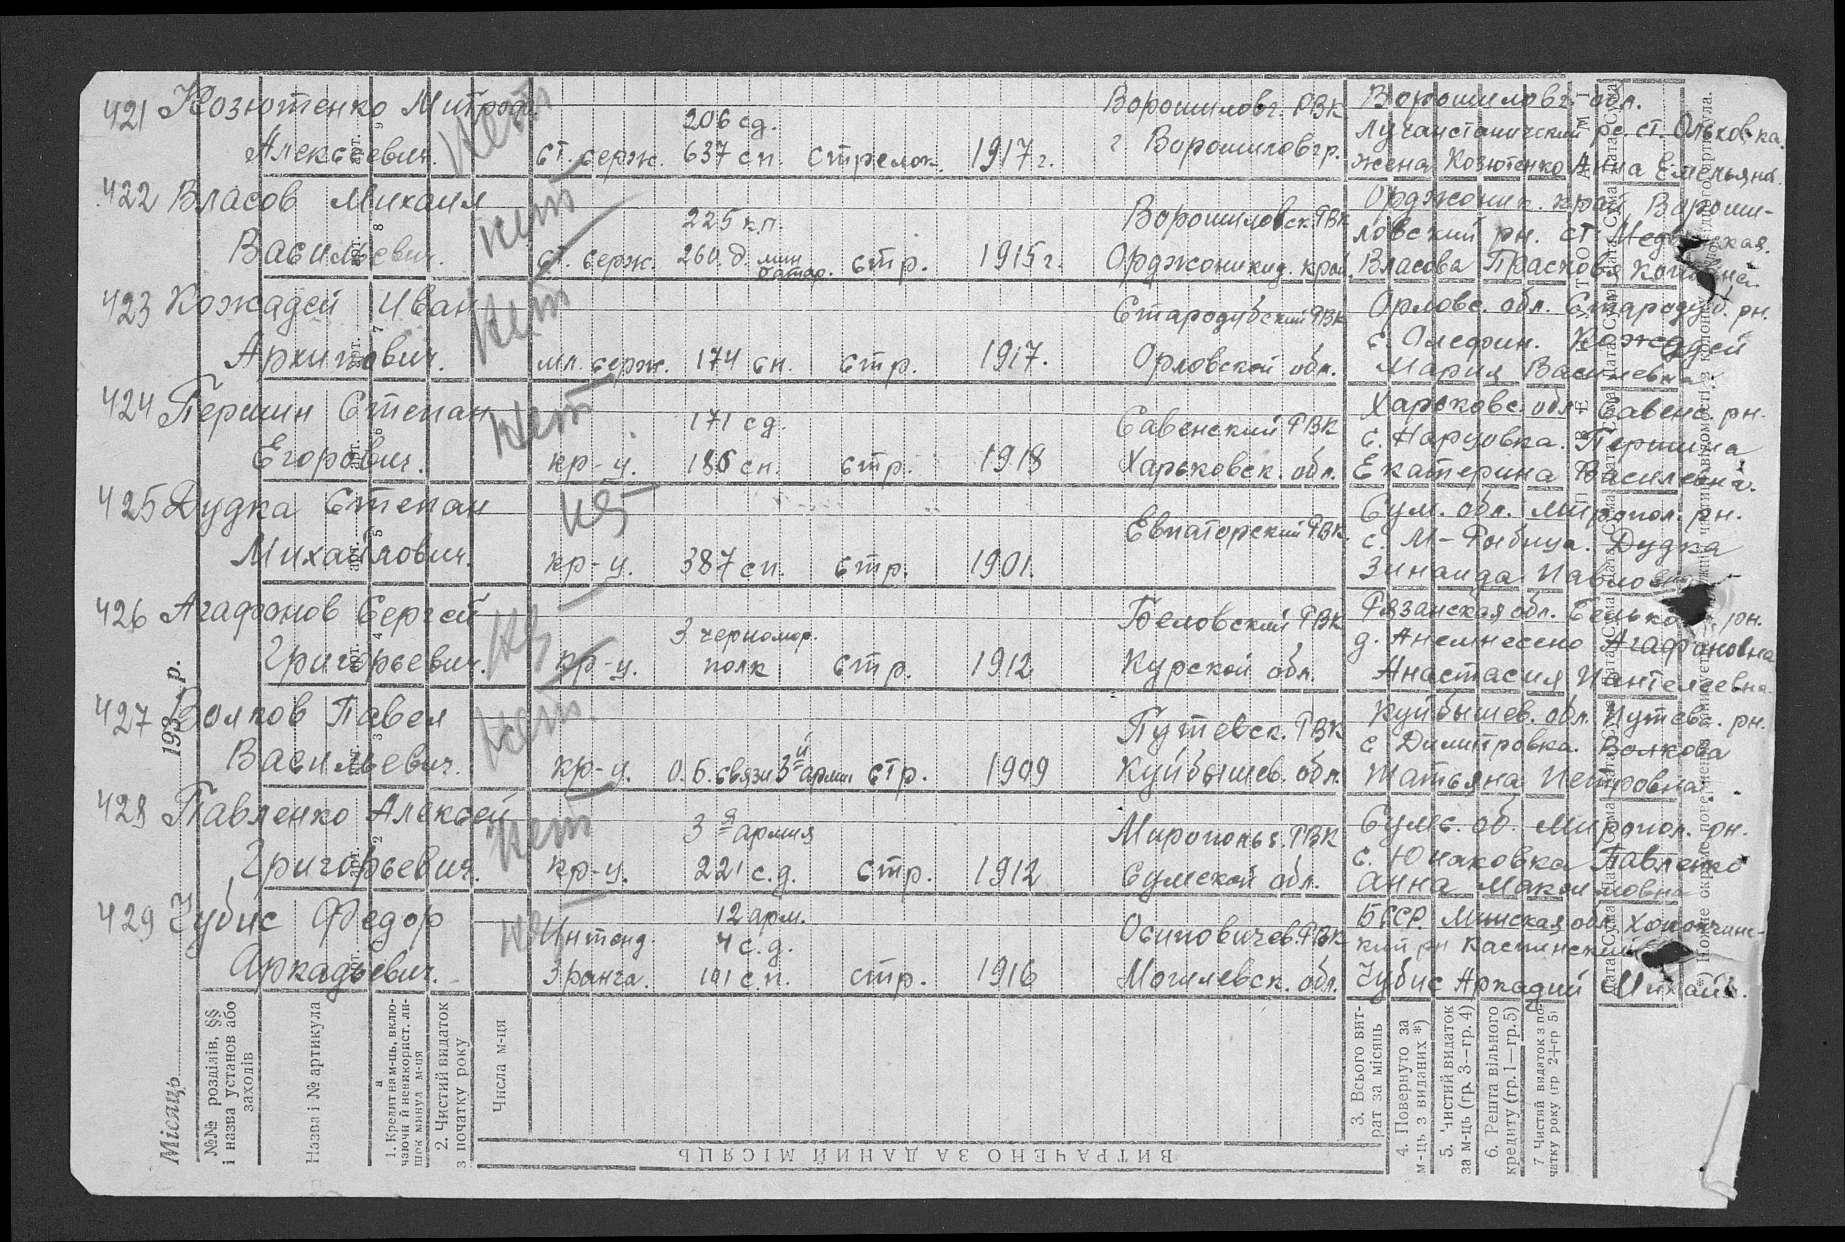 421 Козютенко Митроф. нет 206 сд. Ворошиловг. РВК Ворошиловг. обл.
Лучанстаничский рс. ст. Ольховка.
Алексеевич. ст. серж. 637 сп. стрелок. 1917 г. г Ворошиловгр. жена Козютенко Анна Емельяна.
422 Власов Михаил нет 225 кп. Ворошиловск РВК Орджоник. край Вороши-
ловский рн. ст.
Васильевич. ст. серж. 260 д. мин батар. стр. 1915 г. Орджоникид. край. Власова Прасковя
423 Кожадей Иван нет Стародубский РВК Орловс. обл. Стародуб. рн.
с. Кожадей
Архипович. мл. серж. 174 сп. стр. 1917. Орловской обл. Мария Василевна
424 Першин Степан нет 171 сд. Савенский РВК Харьковс. обл. Савенс рн.
с. Нарцовка. Першина
Егорович. кр-ц. 186 сп. стр. 1918 Харьковск. обл. Екатерина Василевна.
425 Дудка Степан Евпаторский РВК. Сум. обл. Миропол. рн.
с. М-Рыбица. Дудка
Михайлович. кр-ц. 387 сп. стр. 1901. Зинаида Павлов
426 Агафонов Сергей 3 черномор. Беловский РВК Рязанская обл. рн.
д. Агафоновна
Григорьевич. кр-ц. полк стр. 1912 Курской обл. Анастасия Пантелеевна
427 Волков Павел нет. Путевск. РВК Куйбышев. обл. Путевс. рн.
с Димитровка. Волкова
Васильевич. кр-ц. О.б. связи 3й армии стр. 1909 Куйбышев. обл. Татьяна Петровна
428 Павленко Алексей нет 3я армия Мирополь. РВК Сумс. об. Миропол. рн.
с. Юнаковка Павленко
Григорьевич. кр-ц. 221 с.д. стр. 1912 Сумской обл. Анна
429 Чубис Федор 12 арм. Осиповичев. РВК БССР. Минская обл.
Интенд. 4 с.д.
Аркадьевич. 3 ранга. 101 сп. стр. 1916 Могилевск. обл. Чубис Аркадий Михайл.
Місяць 193 р.
№№ розділів, §§
і назва установ або
заходів
Назва і № артикула
1. Кредит на м-ць, вклю-
чаючи й невикорист. ли-
шок минул м-ця
2. Чистий видаток
з початку року
Числа м-ця
ВИТРАЧЕНО ЗА ДАНИЙ МІСЯЦЬ
3. Всього вит-
рат за місяць
4. Повернуто за
м-ць з виданих *)
5. Чистий видаток
за м-ць (гр. 3—гр. 4)
6. Решта вільного
кредиту (гр. 1—гр. 5)
7 Чистий видаток з по-
чатку року (гр 2+гр 5)